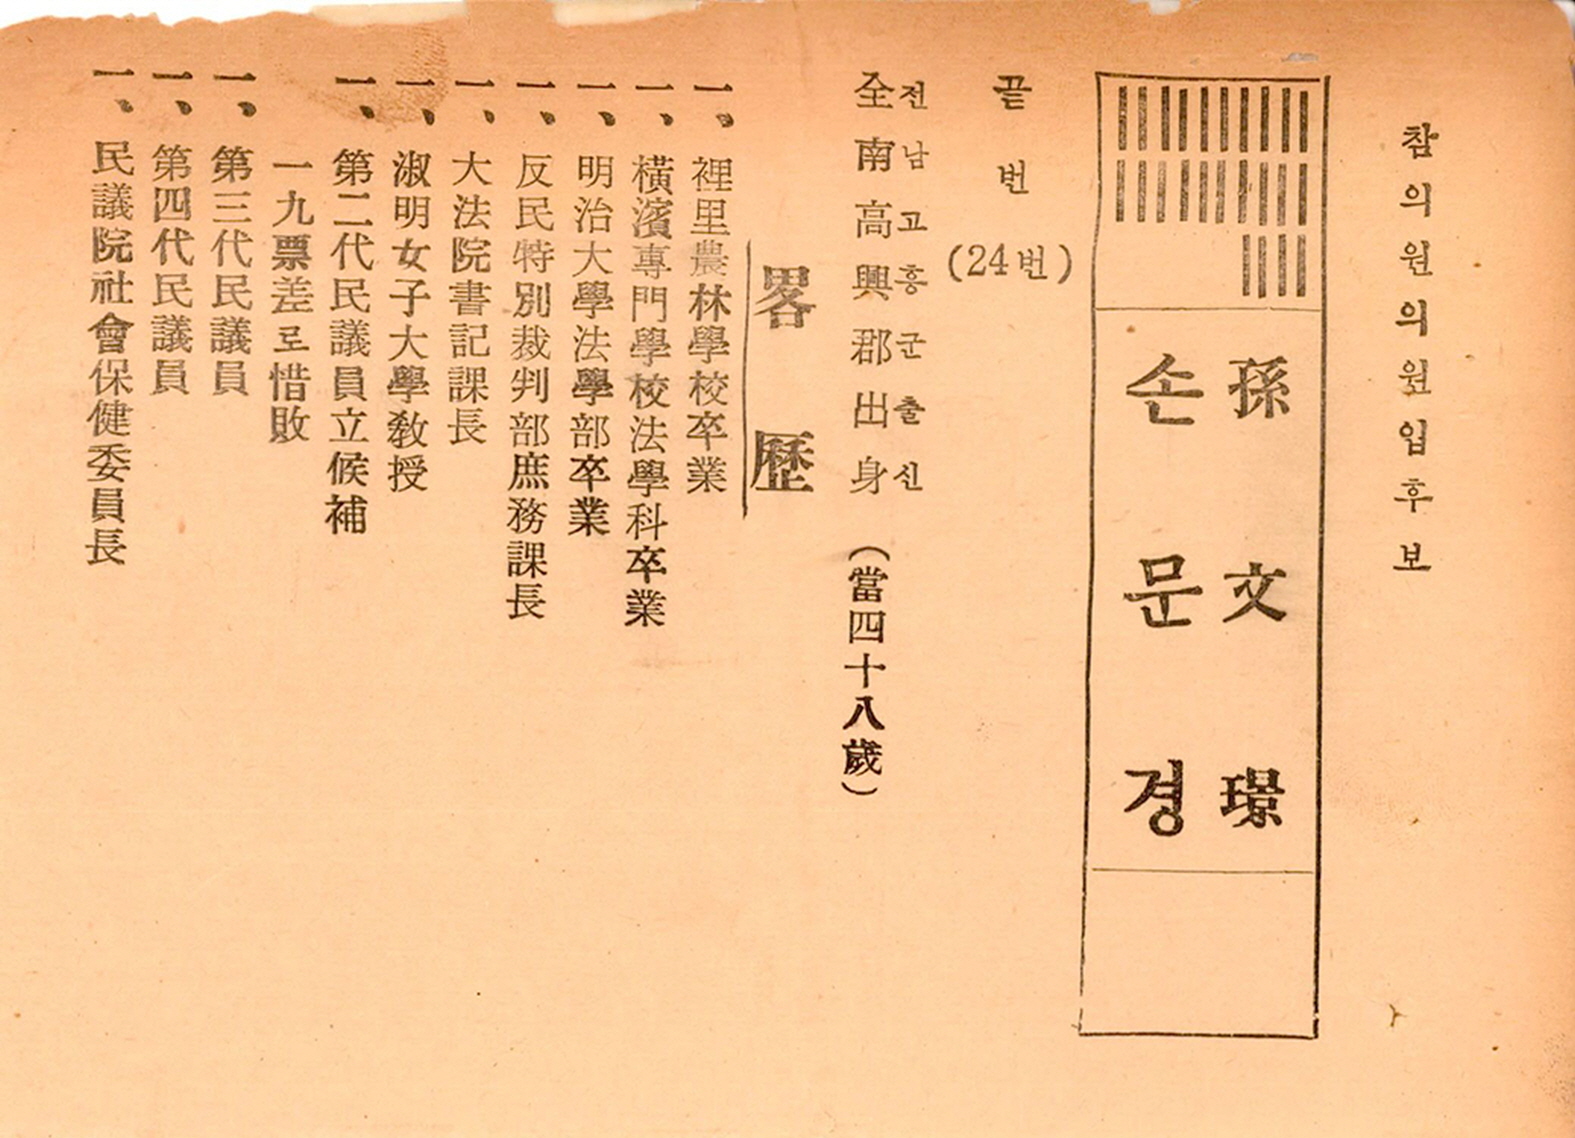 참의원의원입후보
孫文璟
손문경
끝번
(24번)
전남고흥군출신
全南高興郡出身 (當四十八歲)
畧歷
一、裡里農林學校卒業
一、橫濱專門學校法學科卒業
一、明治大學法學部卒業
一、反民特別裁判部庶務課長
一、大法院書記課長
一、淑明女子大學敎授
一、第二代民議員立候補
一九票差로惜敗
一、第三代民議員
一、第四代民議員
一、民議院社會保健委員長